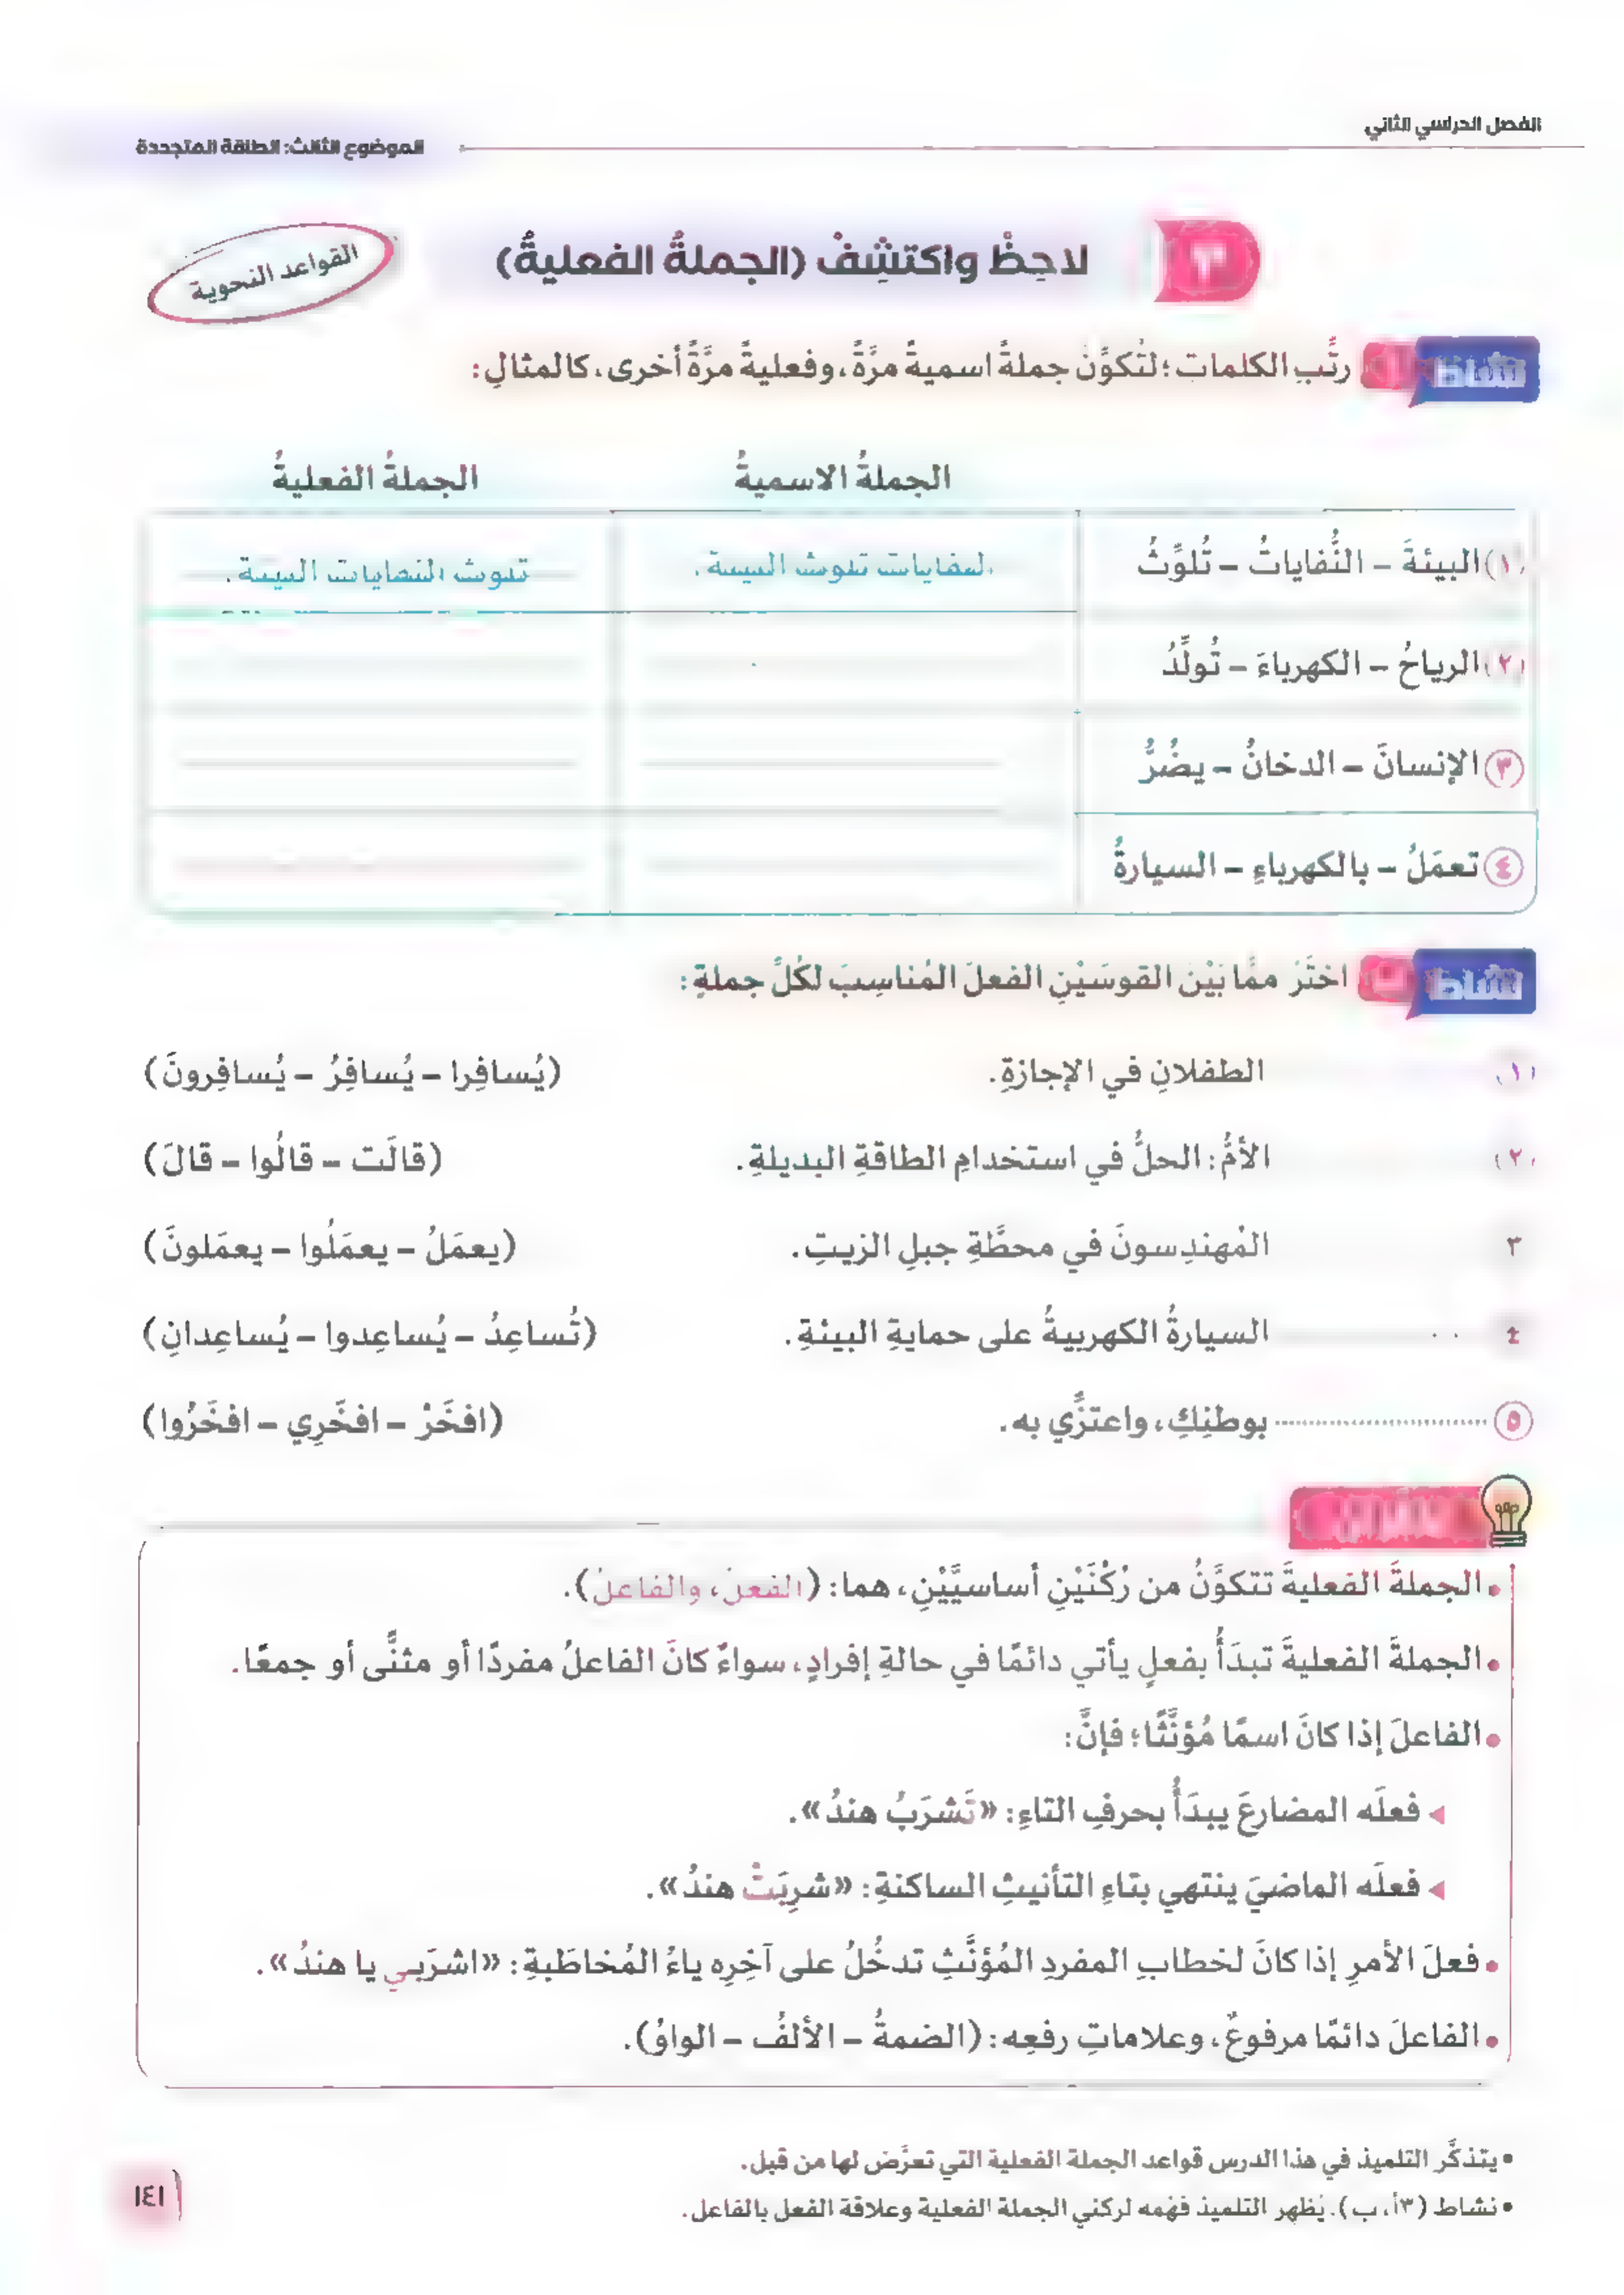 الفصل الدراسي الثاني
الموضوع الثالث: الطاقة المتجددة
٣ لاحِظْ واكتشِفْ (الجملةُ الفعليةُ)
القواعد النحوية
نشاط رتِّبِ الكلمات؛ لتُكوِّنَ جملةً اسميةً مرَّةً، وفعليةً مرَّةً أخرى، كالمثالِ:
الجملةُ الاسميةُ الجملةُ الفعليةُ
(١) البيئةَ – النُّفاياتُ – تُلوِّثُ النفايات تلوث البيئة. تلوث النفايات البيئة.
(٢) الرياحُ – الكهرباءَ – تُولِّدُ
(٣) الإنسانَ – الدخانُ – يضُرُّ
(٤) تعمَلُ – بالكهرباءِ – السيارةُ
نشاط اختَرْ ممَّا بَيْنَ القوسَيْنِ الفعلَ المُناسِبَ لكُلِّ جملةٍ:
(١) الطفلانِ في الإجازةِ. (يُسافِرا – يُسافِرُ – يُسافِرونَ)
(٢) الأمُّ: الحلُّ في استخدامِ الطاقةِ البديلةِ. (قالَت – قالُوا – قالَ)
٣ المُهندِسونَ في محطَّةِ جبلِ الزيتِ. (يعمَلُ – يعمَلُوا – يعمَلونَ)
٤ السيارةُ الكهربيةُ على حمايةِ البيئةِ. (تُساعِدُ – يُساعِدوا – يُساعِدانِ)
(٥) ........................ بوطنِكِ، واعتزِّي به. (افخَرْ – افخَرِي – افخَرُوا)
• الجملةَ الفعليةَ تتكوَّنُ من رُكْنَيْنِ أساسيَّيْنِ، هما: (الفعلُ، والفاعلُ).
• الجملةَ الفعليةَ تبدَأُ بفعلٍ يأتي دائمًا في حالةِ إفرادٍ، سواءٌ كانَ الفاعلُ مفردًا أو مثنًّى أو جمعًا.
• الفاعلَ إذا كانَ اسمًا مُؤنَّثًا؛ فإنَّ:
◂ فعلَه المضارعَ يبدَأُ بحرفِ التاءِ: «تَشرَبُ هندُ».
◂ فعلَه الماضيَ ينتهي بتاءِ التأنيثِ الساكنةِ: «شرِبَتْ هندُ».
• فعلَ الأمرِ إذا كانَ لخطابِ المفردِ المُؤنَّثِ تدخُلُ على آخِرِه ياءُ المُخاطَبةِ: «اشرَبي يا هندُ».
• الفاعلَ دائمًا مرفوعٌ، وعلاماتِ رفعِه: (الضمةُ – الألفُ – الواوُ).
• يتذكَّر التلميذ في هذا الدرس قواعد الجملة الفعلية التي تعرَّض لها من قبل.
• نشاط (٣أ، ب). يُظهر التلميذ فهْمه لركني الجملة الفعلية وعلاقة الفعل بالفاعل.
١٤١